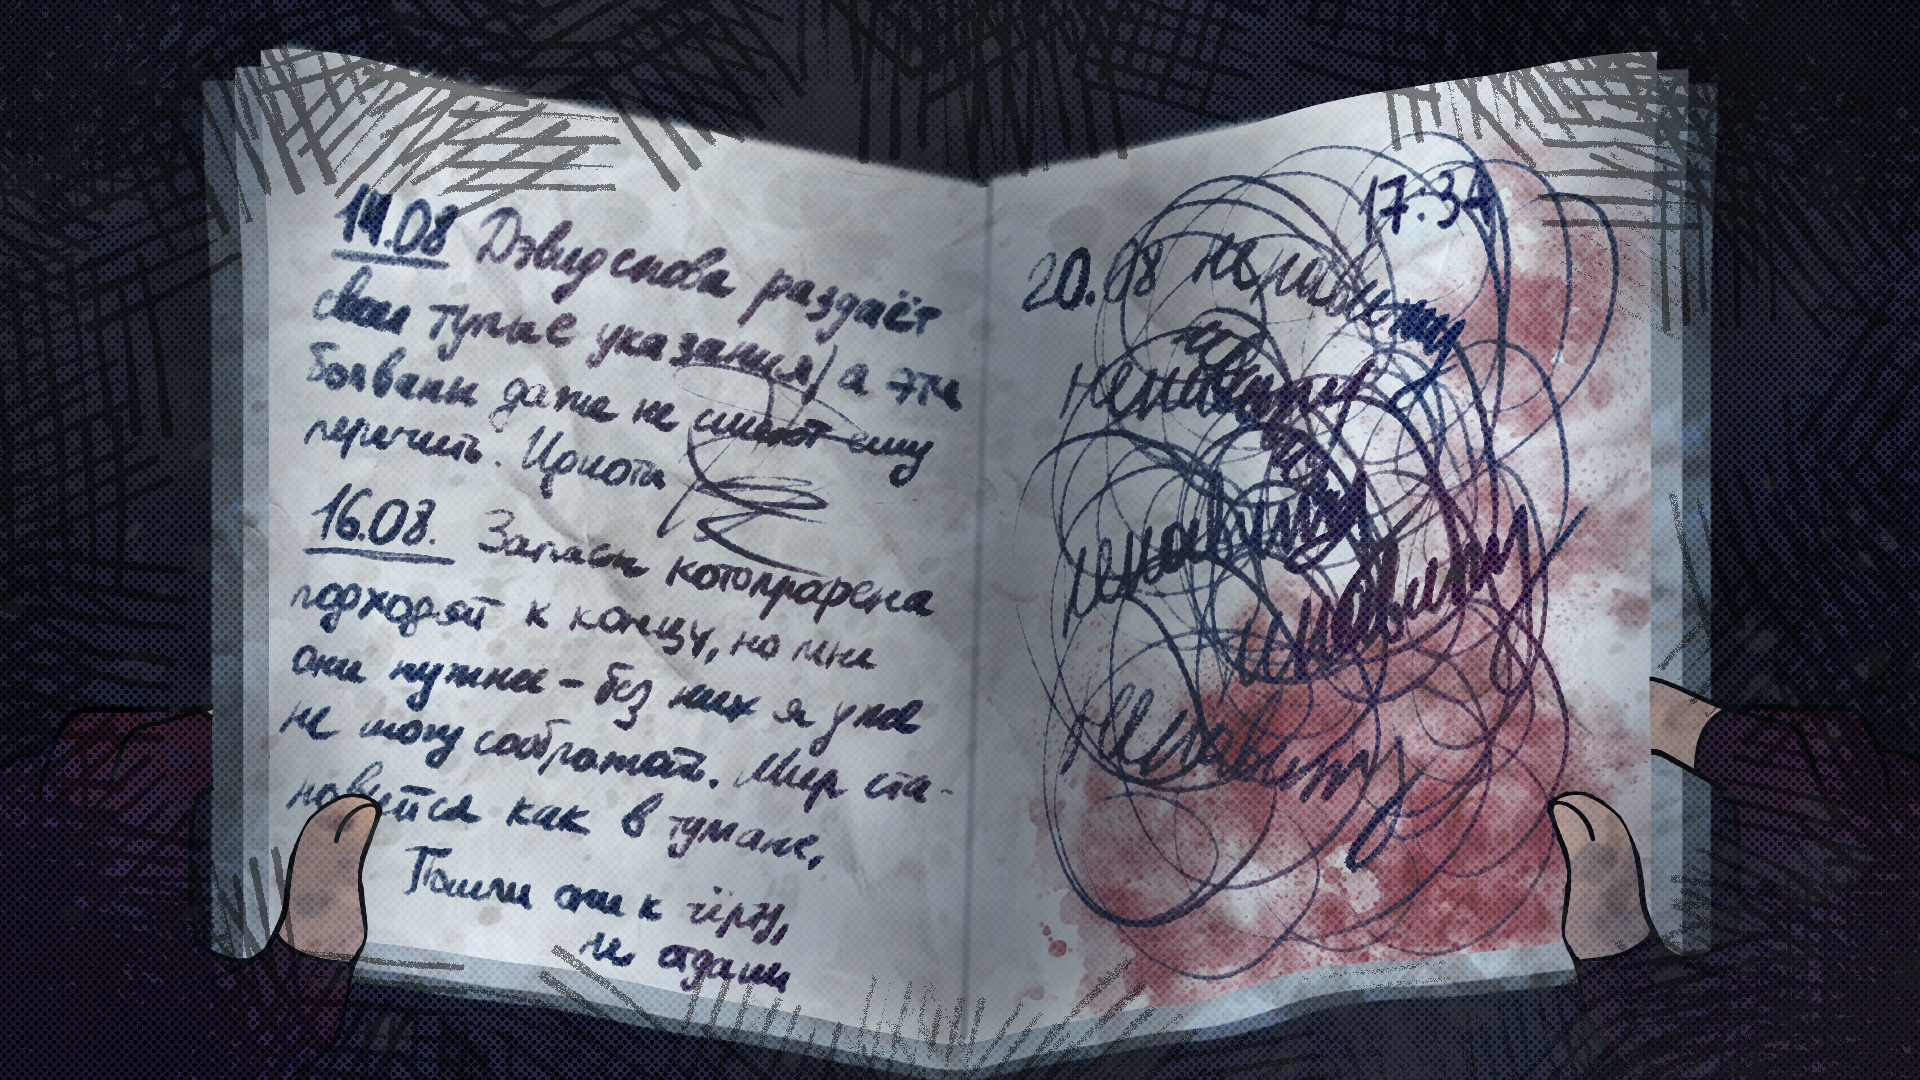 14.08 Дэвид снова раздаёт
свои тупые указания, а эти
болваны даже не смеют ему
перечить. Идиоты
16.08. Запасы котоприфена
подходят к концу, но мне
они нужнее – без них я уже
не могу соображать. Мир ста-
новится как в тумане,
Пошли они к чёрту,
не отдам
17:34
20.08 ненавижу
ненавижу
ненавижу
ненавижу
ненавижу